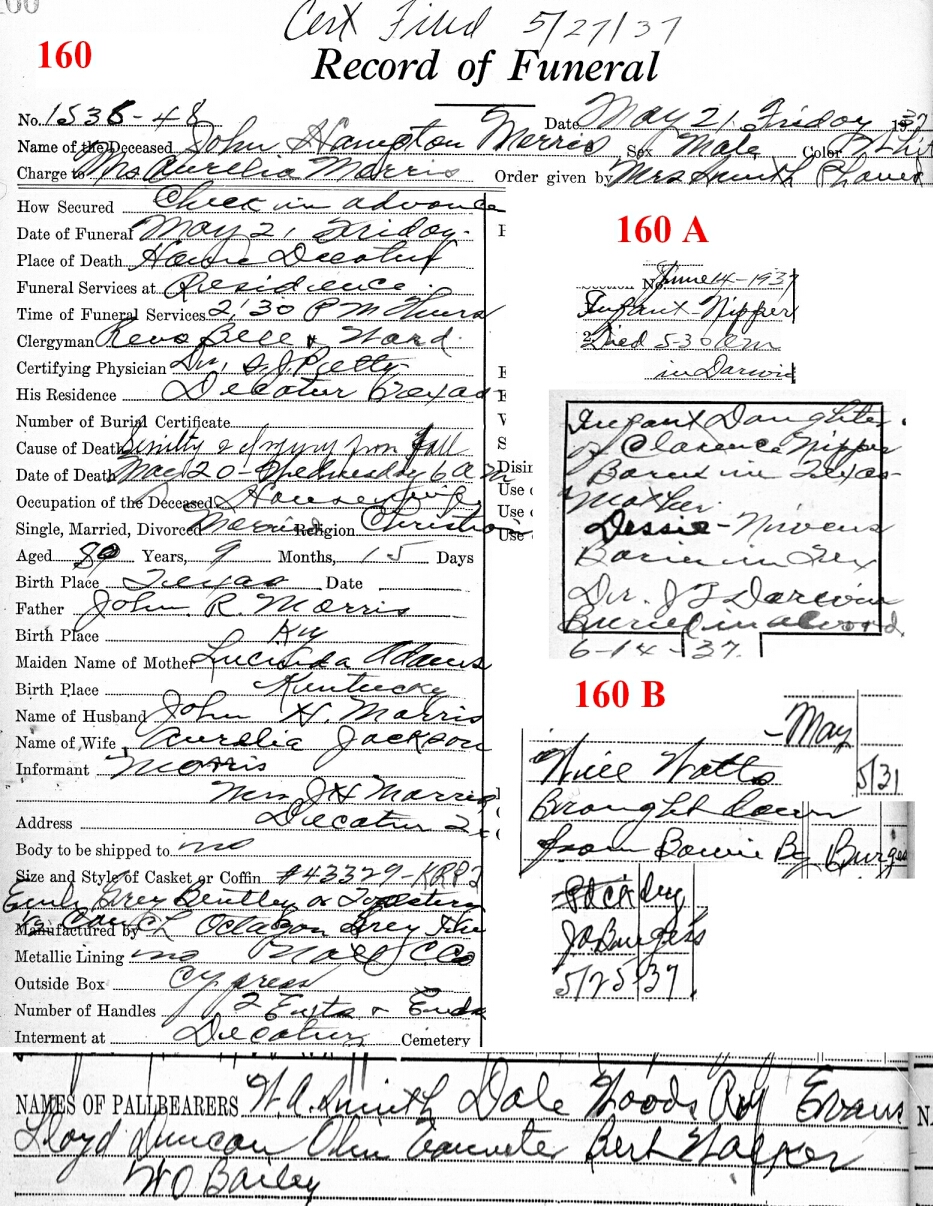 Cert Filed 5/27/37
160
Record of Funeral
No. 1536-48
Date May 21, Friday 1937
Name of the Deceased John Hampton Morris Sex Male Color Whit
Charge to Mrs Aurelia Morris Order given by Mrs Smith
How Secured Check in advance
Date of Funeral May 21, Friday.
Place of Death Home Decatur
Funeral Services at Residence
Time of Funeral Services 2;30 P M Thurs
Clergyman Revs Bell & Ward.
Certifying Physician Dr, S.J. Petty
His Residence Decatur Texas
Number of Burial Certificate
Cause of Death Senility & Injury from fall
Date of Death May 20 - Wednesday 6 a m
Occupation of the Deceased
Single, Married, Divorced Married Religion Christian
Aged 80 Years, 9 Months, 15 Days
Birth Place Texas Date
Father John R. Morris
Birth Place Ky
Maiden Name of Mother Lucinda Adams
Birth Place Kentucky
Name of Husband John H. Morris
Name of Wife Aurelia Jackson
Informant Morris
Mrs J H Morris
Address Decatur
Body to be shipped to no
Size and Style of Casket or Coffin #43329-
Grey Bentley
Manufactured by Octagon Grey
Metallic Lining no
Outside Box Cypress
Number of Handles 2 Exts & Ends
Interment at Decatur Cemetery
160 A
No June 14-1937
Infant-Nipper
Died 5-30 P m
in Darwin
Infant Daughter
of Clarence Nipper
Born in Texas
Mother.
Dessie-Nivens
Born in Tex
Dr. J T Darwin
Buried in alvord,
6-14-37.
160 B
-May
5/31
Will Watts
Brought down
from Bowie By Burges
Pack dry
Jo Burgess
5/25/37.
NAMES OF PALLBEARERS W.A. Smith Dale Woods Roy Evans
Lloyd Duncan Olin Bert Walker
W O Bailey